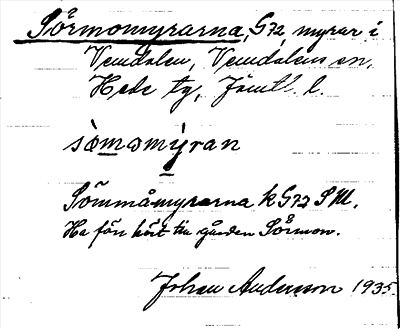 Sörmomyrarna, G72, myrar i
Vemdalen, Vemdalens sn,
Hede tg, Jämtl. l.
sòmǝmỳran
Sömmåmyrarna k G72 S M.
Ha förr hört till gården Sörmon.
Johan Anderson 1935.